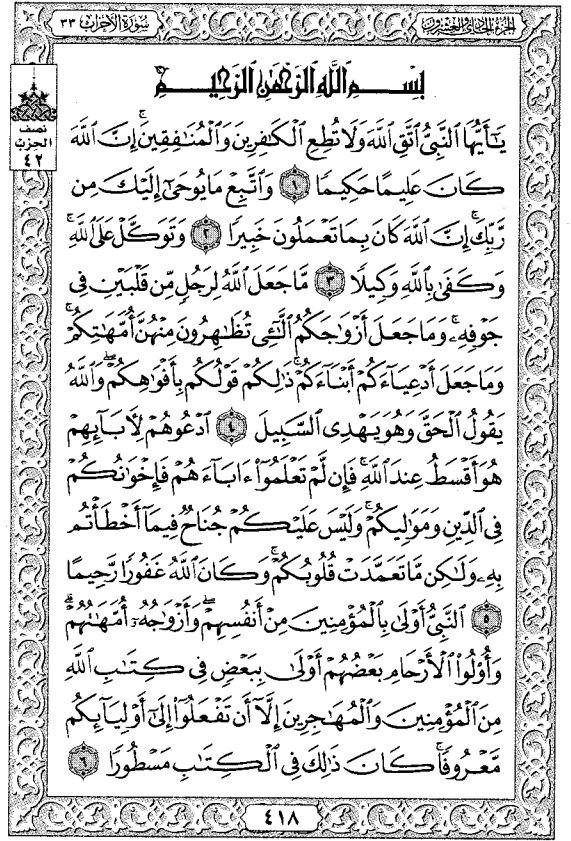 الجزء الحادي والعشرون
سُورَةُ الأَحْزَابِ ٣٣
نصف
الحزب
٤٢
بِسْمِ ٱللَّهِ ٱلرَّحْمَٰنِ ٱلرَّحِيمِ
يَٰٓأَيُّهَا ٱلنَّبِىُّ ٱتَّقِ ٱللَّهَ وَلَا تُطِعِ ٱلْكَٰفِرِينَ وَٱلْمُنَٰفِقِينَ ۗ إِنَّ ٱللَّهَ
كَانَ عَلِيمًا حَكِيمًا ١ وَٱتَّبِعْ مَا يُوحَىٰٓ إِلَيْكَ مِن
رَّبِّكَ ۚ إِنَّ ٱللَّهَ كَانَ بِمَا تَعْمَلُونَ خَبِيرًا ٢ وَتَوَكَّلْ عَلَى ٱللَّهِ ۚ
وَكَفَىٰ بِٱللَّهِ وَكِيلًا ٣ مَّا جَعَلَ ٱللَّهُ لِرَجُلٍ مِّن قَلْبَيْنِ فِى
جَوْفِهِۦ ۚ وَمَا جَعَلَ أَزْوَٰجَكُمُ ٱلَّٰٓـِٔى تُظَٰهِرُونَ مِنْهُنَّ أُمَّهَٰتِكُمْ ۚ
وَمَا جَعَلَ أَدْعِيَآءَكُمْ أَبْنَآءَكُمْ ۚ ذَٰلِكُمْ قَوْلُكُم بِأَفْوَٰهِكُمْ ۖ وَٱللَّهُ
يَقُولُ ٱلْحَقَّ وَهُوَ يَهْدِى ٱلسَّبِيلَ ٤ ٱدْعُوهُمْ لِءَابَآئِهِمْ
هُوَ أَقْسَطُ عِندَ ٱللَّهِ ۚ فَإِن لَّمْ تَعْلَمُوٓا۟ ءَابَآءَهُمْ فَإِخْوَٰنُكُمْ
فِى ٱلدِّينِ وَمَوَٰلِيكُمْ ۚ وَلَيْسَ عَلَيْكُمْ جُنَاحٌ فِيمَآ أَخْطَأْتُم
بِهِۦ وَلَٰكِن مَّا تَعَمَّدَتْ قُلُوبُكُمْ ۚ وَكَانَ ٱللَّهُ غَفُورًا رَّحِيمًا
٥ ٱلنَّبِىُّ أَوْلَىٰ بِٱلْمُؤْمِنِينَ مِنْ أَنفُسِهِمْ ۖ وَأَزْوَٰجُهُۥٓ أُمَّهَٰتُهُمْ ۗ
وَأُو۟لُوا۟ ٱلْأَرْحَامِ بَعْضُهُمْ أَوْلَىٰ بِبَعْضٍ فِى كِتَٰبِ ٱللَّهِ
مِنَ ٱلْمُؤْمِنِينَ وَٱلْمُهَٰجِرِينَ إِلَّآ أَن تَفْعَلُوٓا۟ إِلَىٰٓ أَوْلِيَآئِكُم
مَّعْرُوفًا ۚ كَانَ ذَٰلِكَ فِى ٱلْكِتَٰبِ مَسْطُورًا ٦
٤١٨